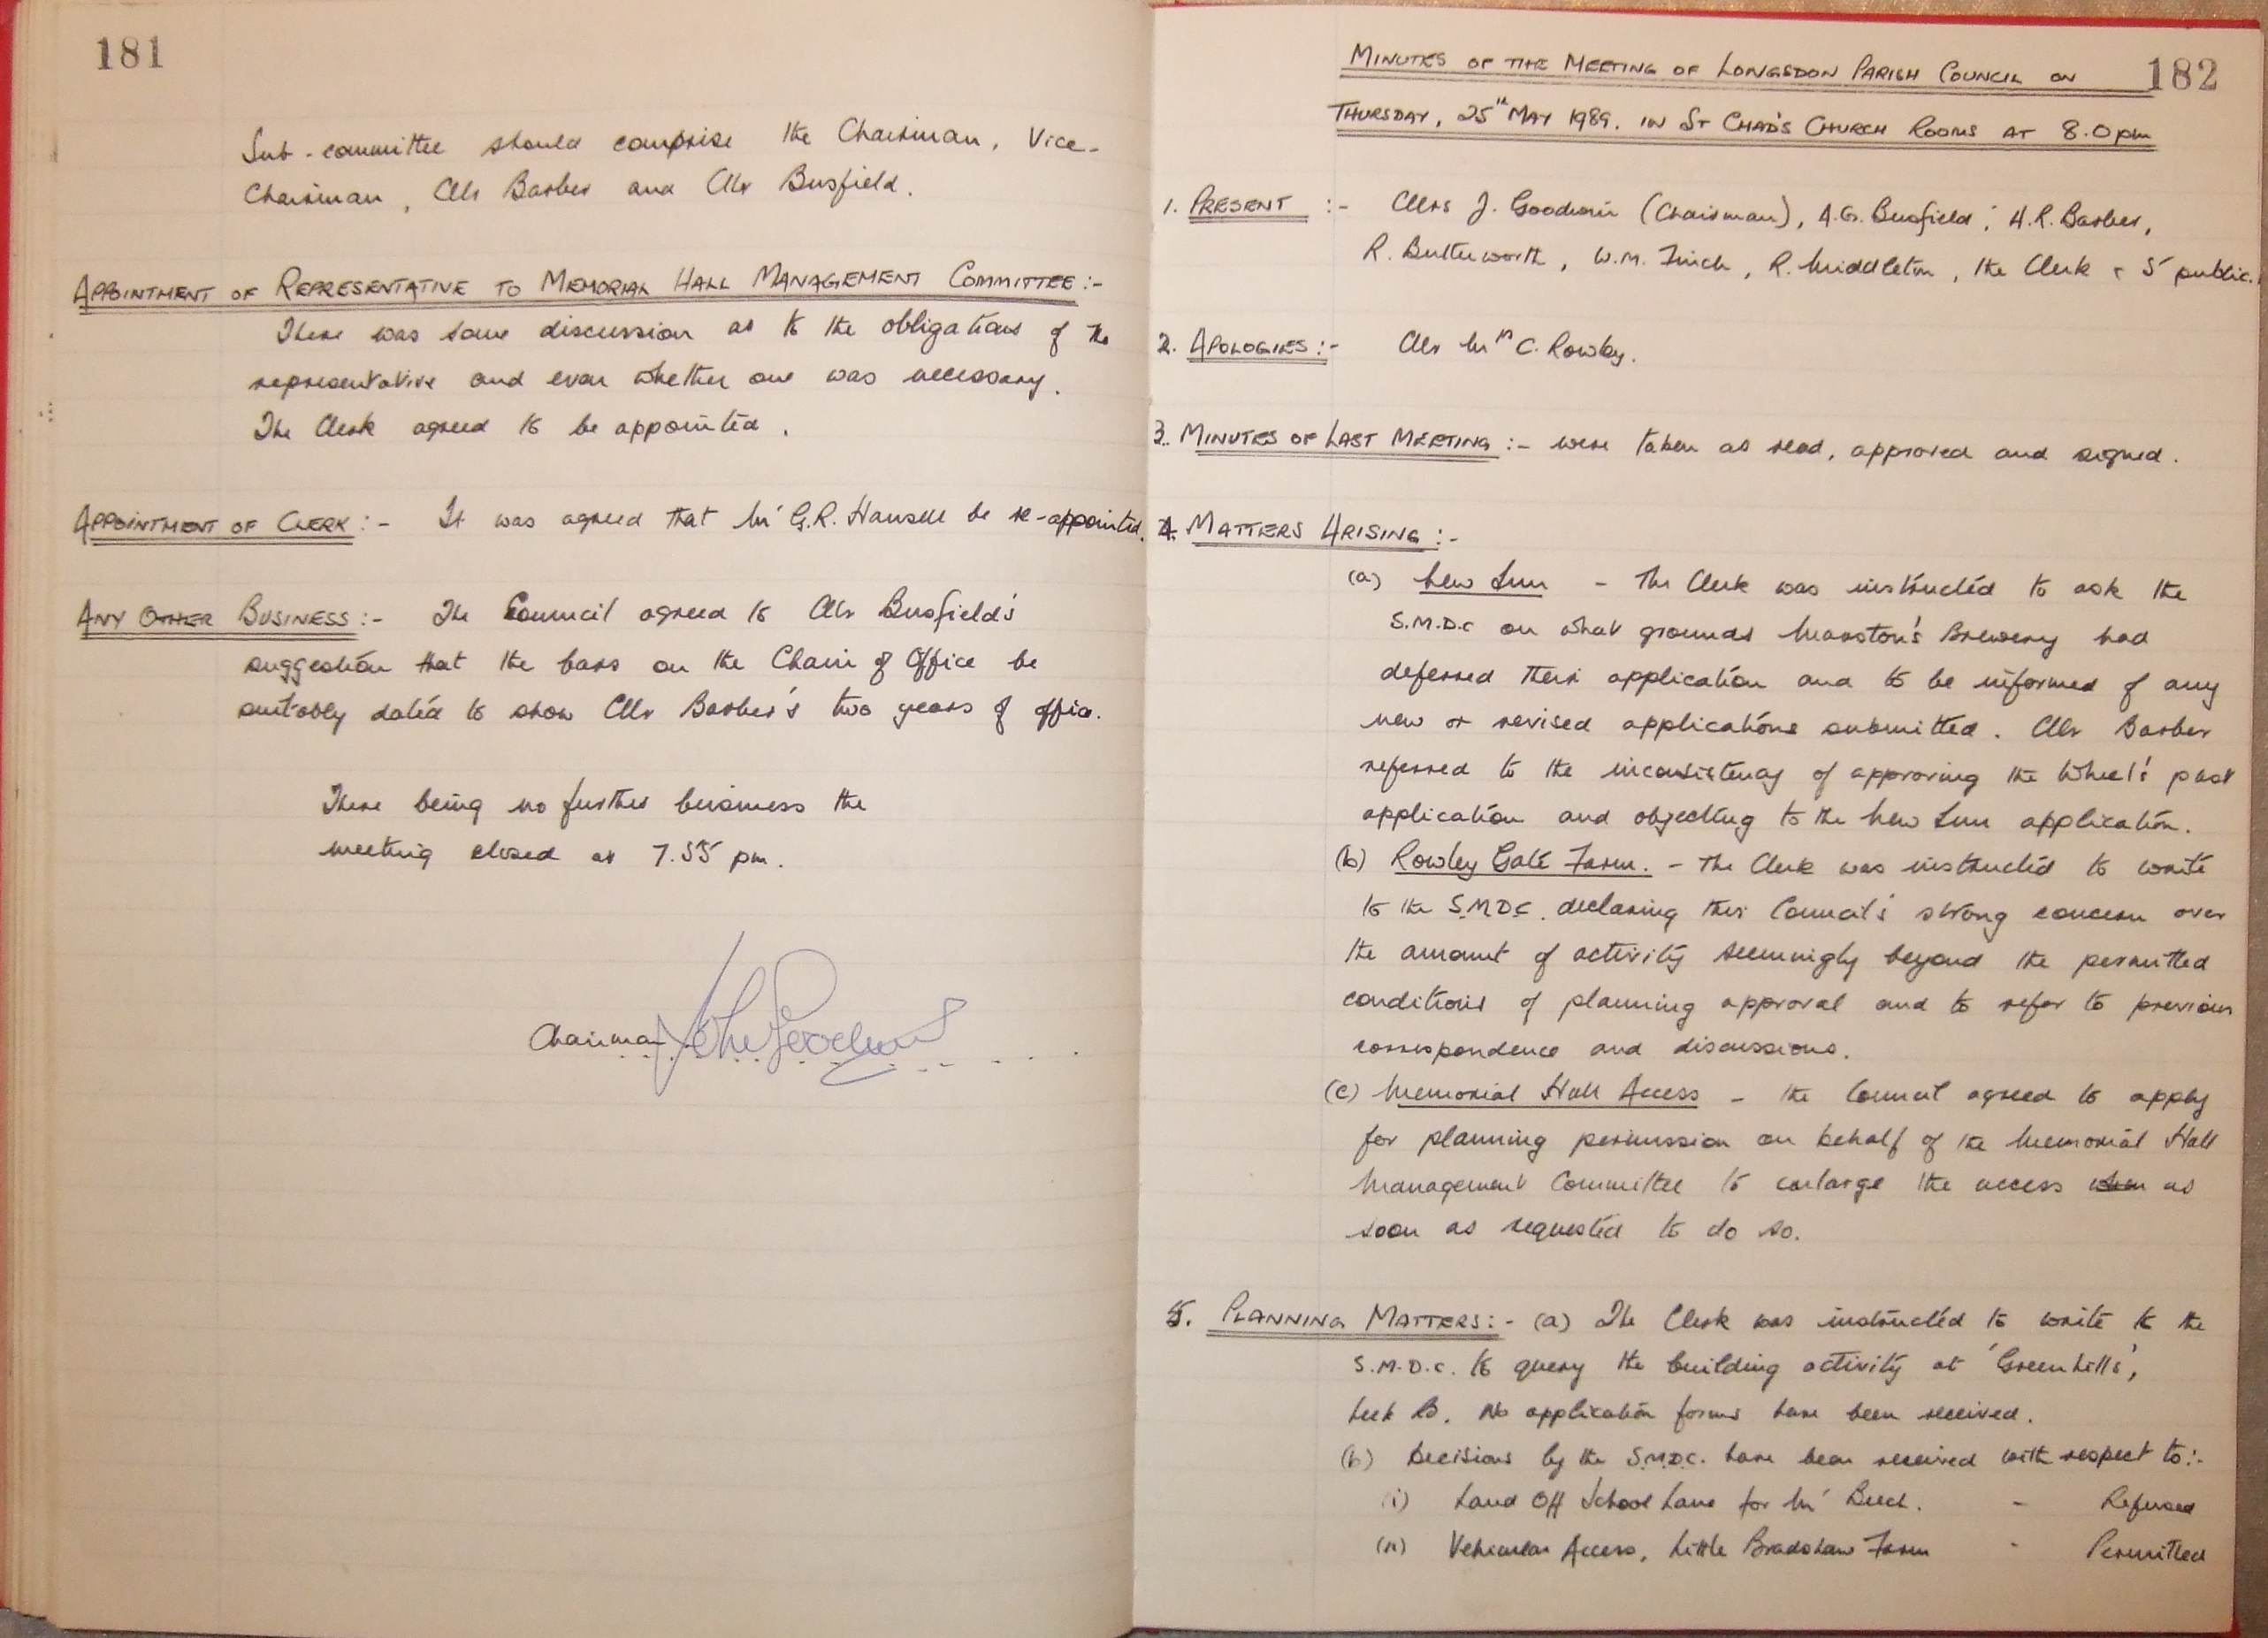 181
Sub-committee should comprise the Chairman, Vice-
Chairman, Cllr Barber and Cllr Busfield.
APPOINTMENT OF REPRESENTATIVE TO MEMORIAL HALL MANAGEMENT COMMITTEE:-
There was some discussion as to the obligations of the
representative and even whether one was necessary.
The Clerk agreed to be appointed.
APPOINTMENT OF CLERK:- It was agreed that Mr G.R. Hansell be re-appointed.
ANY OTHER BUSINESS:- The Council agreed to Cllr Busfield's
suggestion that the bars on the Chain of Office be
suitably dated to show Cllr Barber's two years of office.
There being no further business the
meeting closed at 7.55 pm.
Chairman John Goodwin
182
MINUTES OF THE MEETING OF LONGSDON PARISH COUNCIL ON
THURSDAY, 25th MAY 1989. IN ST CHAD'S CHURCH ROOMS AT 8.0pm
1. PRESENT :- Cllrs J. Goodwin (Chairman), A.G. Busfield, H.R. Barber,
R. Butterworth, W.M. Finch, R. Middleton, the Clerk & 5 public.
2. APOLOGIES:- Cllr Mrs C. Rowley.
3. MINUTES OF LAST MEETING:- were taken as read, approved and signed.
4. MATTERS ARISING:-
(a) New Inn - The Clerk was instructed to ask the
S.M.D.C on what grounds Marston's Brewery had
deferred their application and to be informed of any
new or revised applications submitted. Cllr Barber
referred to the inconsistency of approving the Wheel's past
application and objecting to the New Inn application.
(b) Rowley Gate Farm. - The Clerk was instructed to write
to the S.M.D.C. declaring this Council's strong concern over
the amount of activity seemingly beyond the permitted
conditions of planning approval and to refer to previous
correspondence and discussions.
(c) Memorial Hall Access - the Council agreed to apply
for planning permission on behalf of the Memorial Hall
Management Committee to enlarge the access when as
soon as requested to do so.
5. PLANNING MATTERS:- (a) The Clerk was instructed to write to the
S.M.D.C. to query the building activity at 'Greenhills',
Leek Rd. No application forms have been received.
(b) Decisions by the S.M.D.C. have been received with respect to:-
(i) Land Off School Lane for Mr Beech. - Refused
(ii) Vehicular Access, Little Bradshaw Farm - Permitted